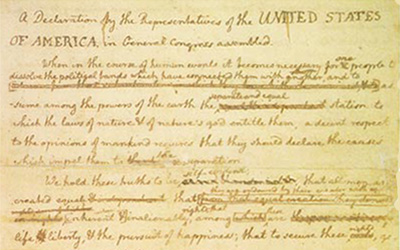 A Declaration by the Representatives of the UNITED STATES
OF AMERICA, in General Congress assembled.
When in the course of human events it becomes necessary for a people to
one
dissolve the political bands which have connected them with another, and to
as
separate and equal
-sume among the powers of the earth the station to
which the laws of nature & of nature's god entitle them, a decent respect
to the opinions of mankind requires that they should declare the causes
which impel them to the separation
self-evident
We hold these truths to be that all men are
they are endowed by their creator with
created equal that
rights; that
inherent & inalienable among which are
life liberty, & the pursuit of happiness; that to secure these
rights